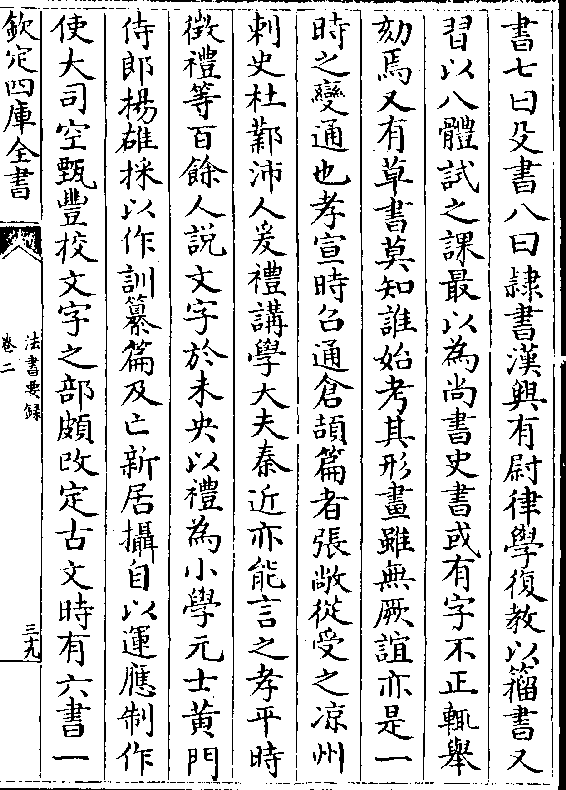 書七曰殳書八曰隷書漢興有尉律學復教以籀書又
習以八體試之課最以為尚書史書或有字不正輒舉
劾焉又有草書莫知誰始考其形畫雖無厥誼亦是一
時之變通也孝宣時召通倉頡篇者張敞從受之凉州
刺史杜鄴沛人爰禮講學大夫秦近亦能言之孝平時
徵禮等百餘人說文字於未央以禮為小學元士黄門
侍郎揚雄採以作訓纂篇及亡新居攝自以運應制作
使大司空甄豐校文字之部頗改定古文時有六書一
欽定四庫全書
法書要録
卷二
三十九